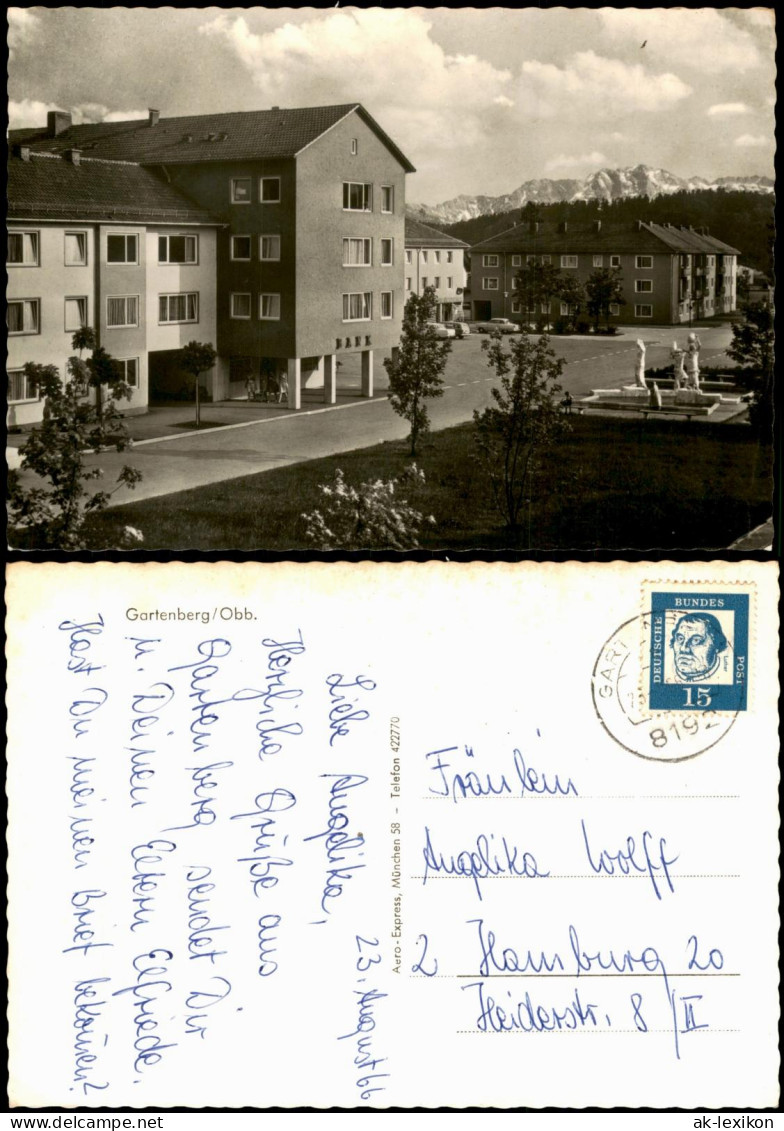 BANK
Gartenberg/Obb.
23. August 66
Liebe Angelika,
Herzliche Grüße aus
Gartenberg sendet Dir
u. Deinen Eltern Elfriede.
Hast Du meinen Brief bekommen?
Aero-Express, München 58 – Telefon 422770
DEUTSCHE BUNDESPOST
Luther
15
GART
8192
Fräulein
Angelika Wolff
2 Hamburg 20
Heiderstr. 8/II
delcampe.net
ak-lexikon